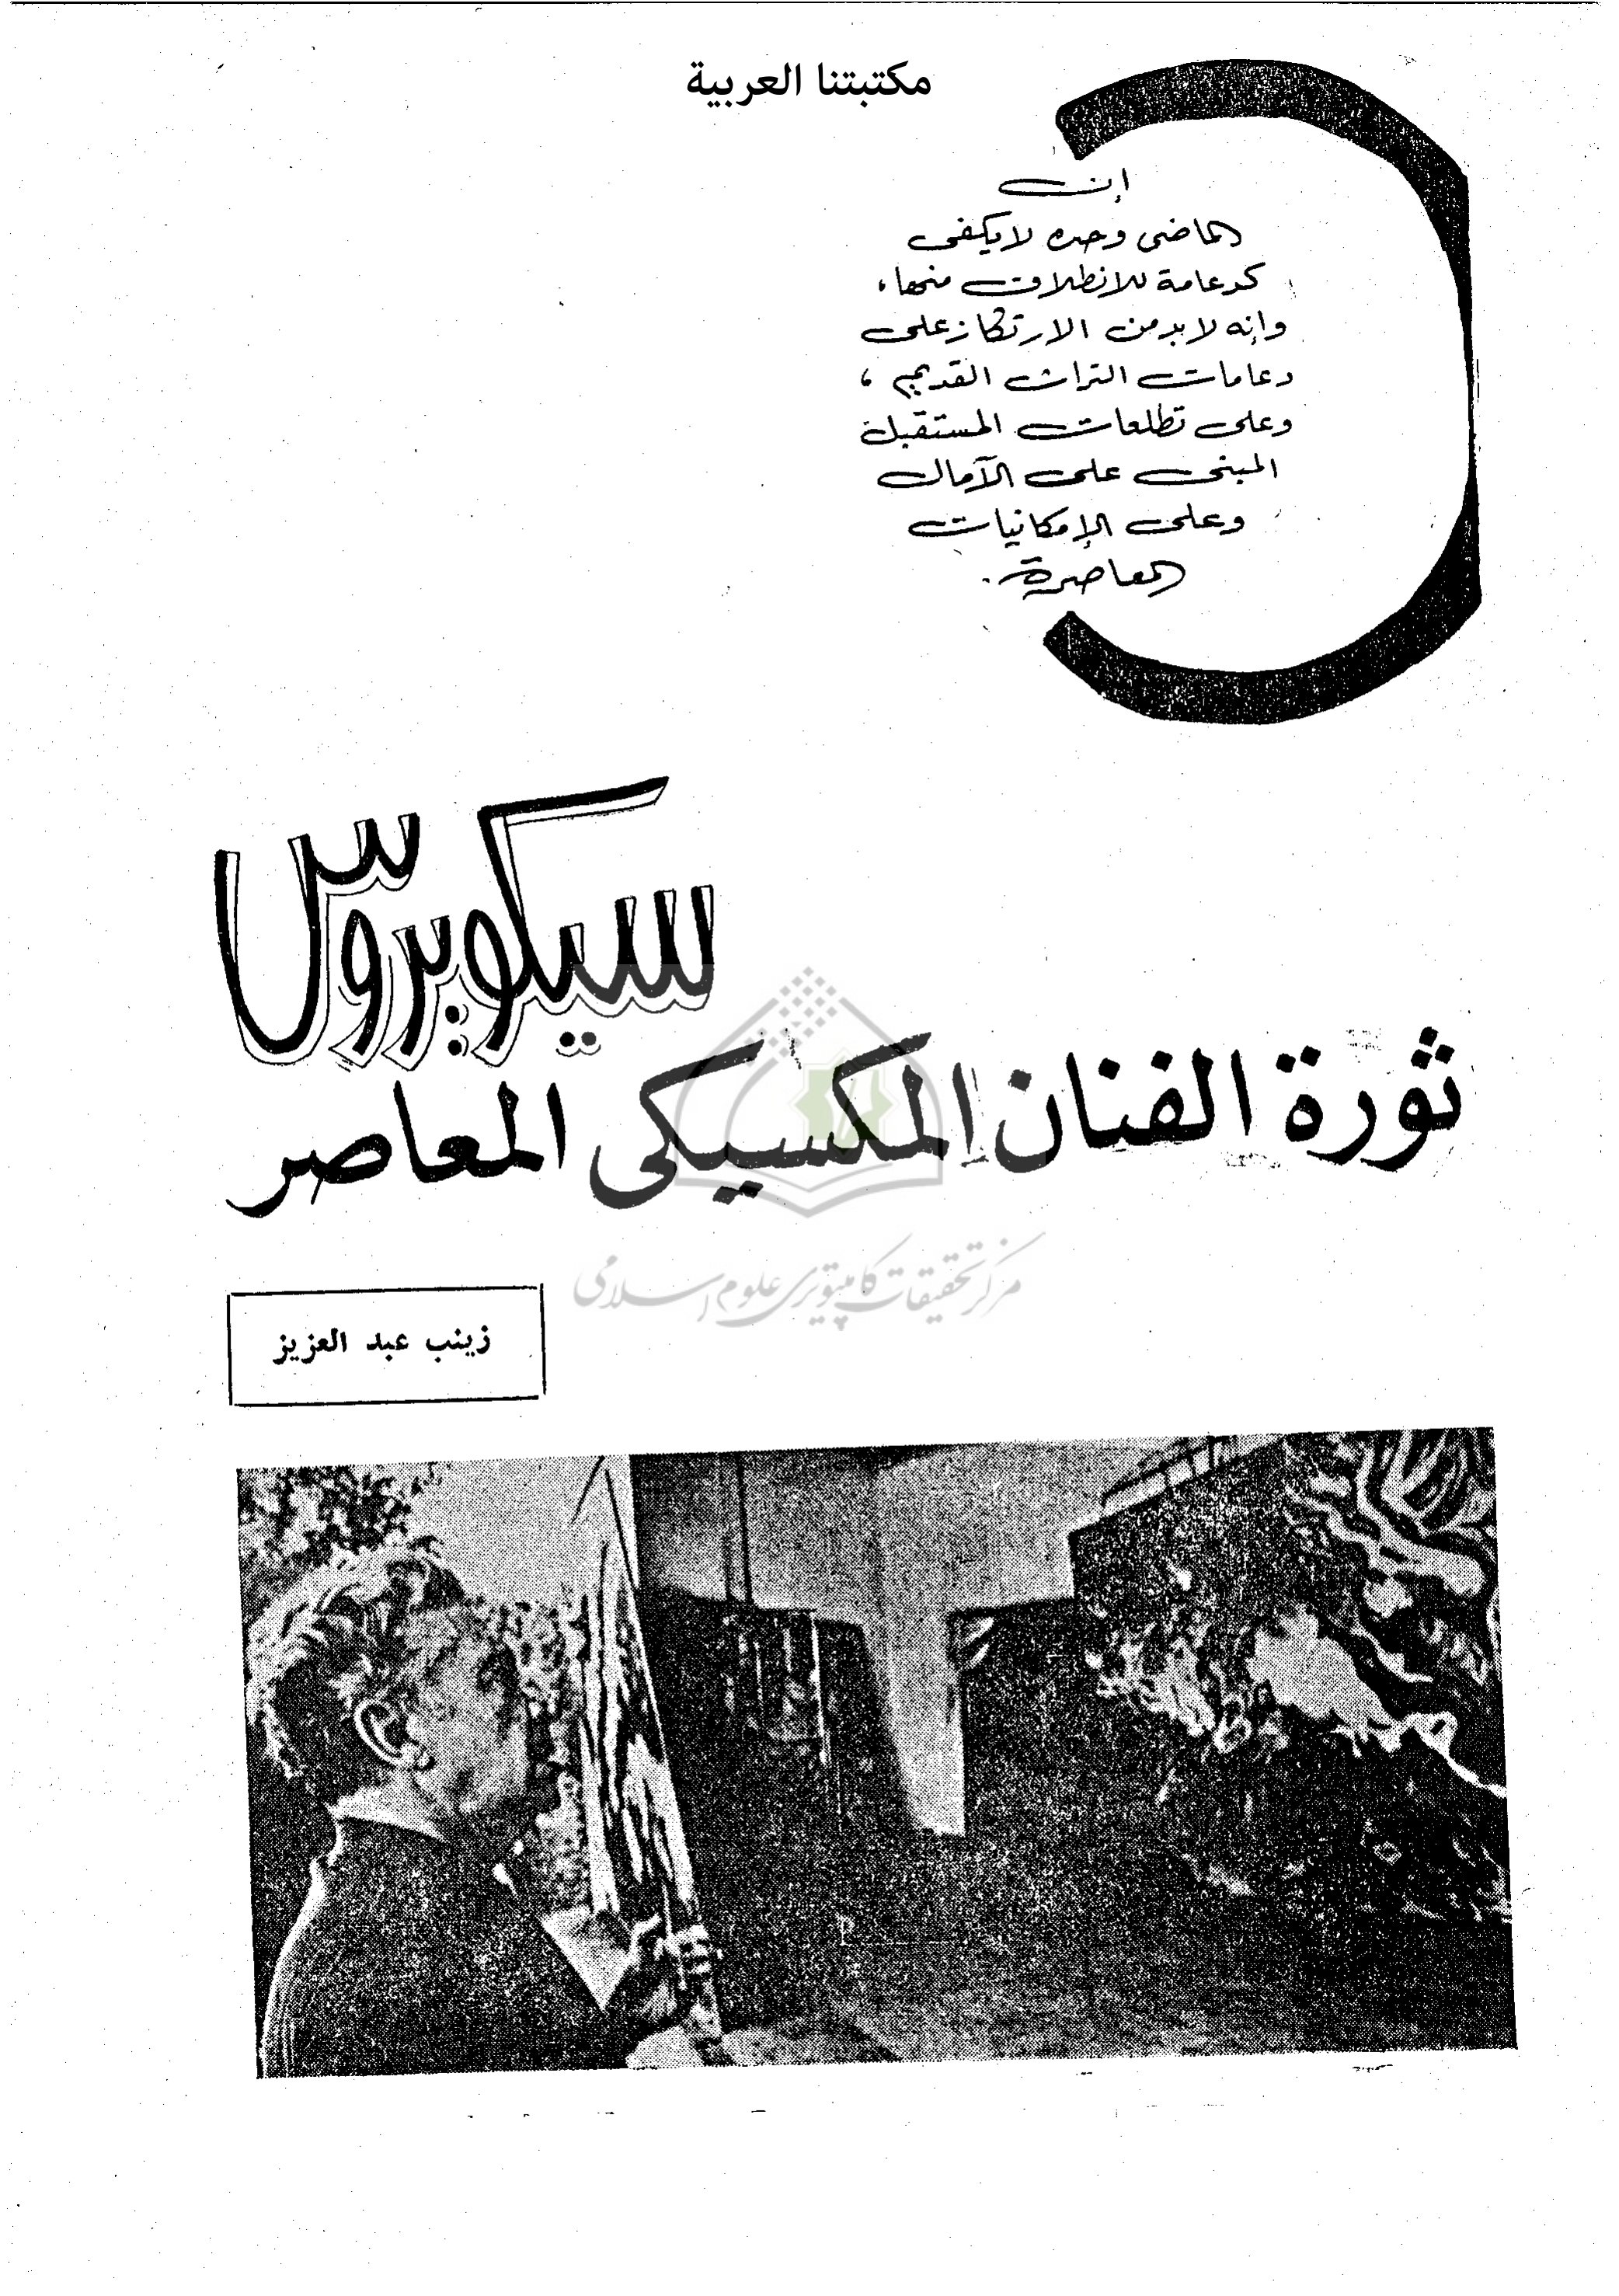 مكتبتنا العربية
إن
الماضى وحده لا يكفى
كدعامة للانطلاق منها،
وإنه لابد من الارتكاز على
دعامات التراث القديم ،
وعلى تطلعات المستقبل
المبنى على الآمال
وعلى الإمكانيات
المعاصرة .
سيكويروس
ثورة الفنان المكسيكى المعاصر
مرکز تحقیقات کامپیوتری علوم اسلامی
زينب عبد العزيز